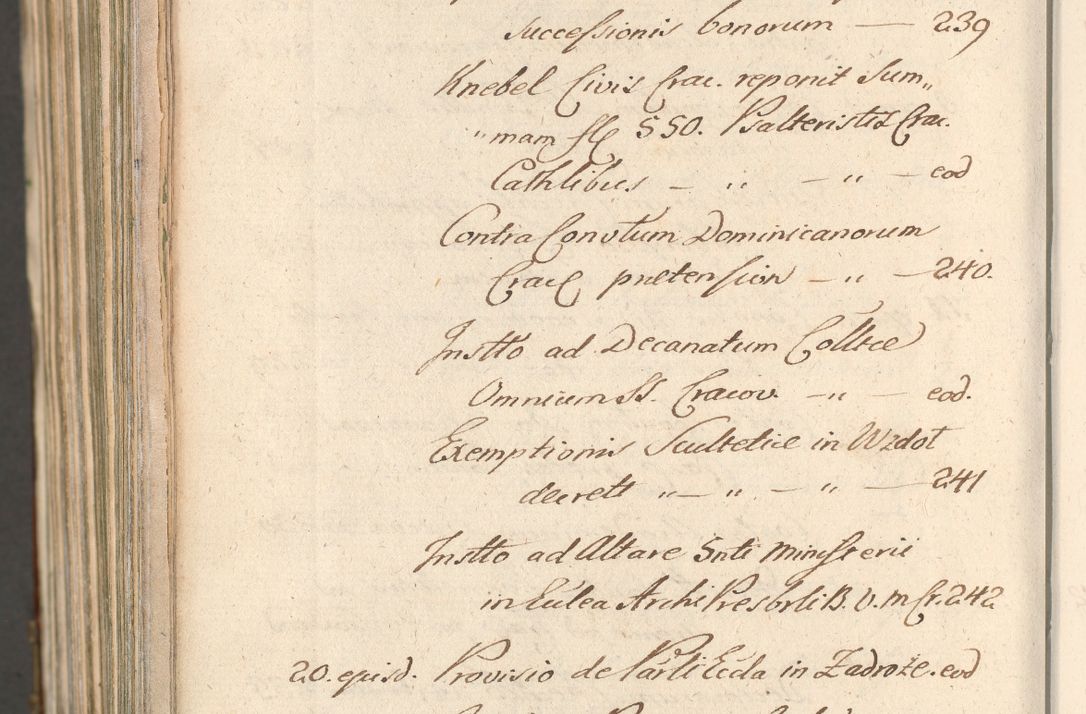 Successionis bonorum — 239
Knebel Civis Crac. reponit Sum„
„mam fl 550. Psalteristis Crac.
Cathlibus — „ — „ — eod
Contra Convtum Dominicanorum
Crac prætension — „ — 240.
Instto ad Decanatum Colltæ
Omnium SS. Cracov. — „ — eod.
Exemptionis Scultetiæ in Wzdot
decrett „ — „ — „ — 241
Instto ad Altare Snti Ministerii
in Ecclea ArchiPresbrli B. V. M. Cr. 242
20. ejusd. Provisio de Parli Eccla in Zadroże. eod